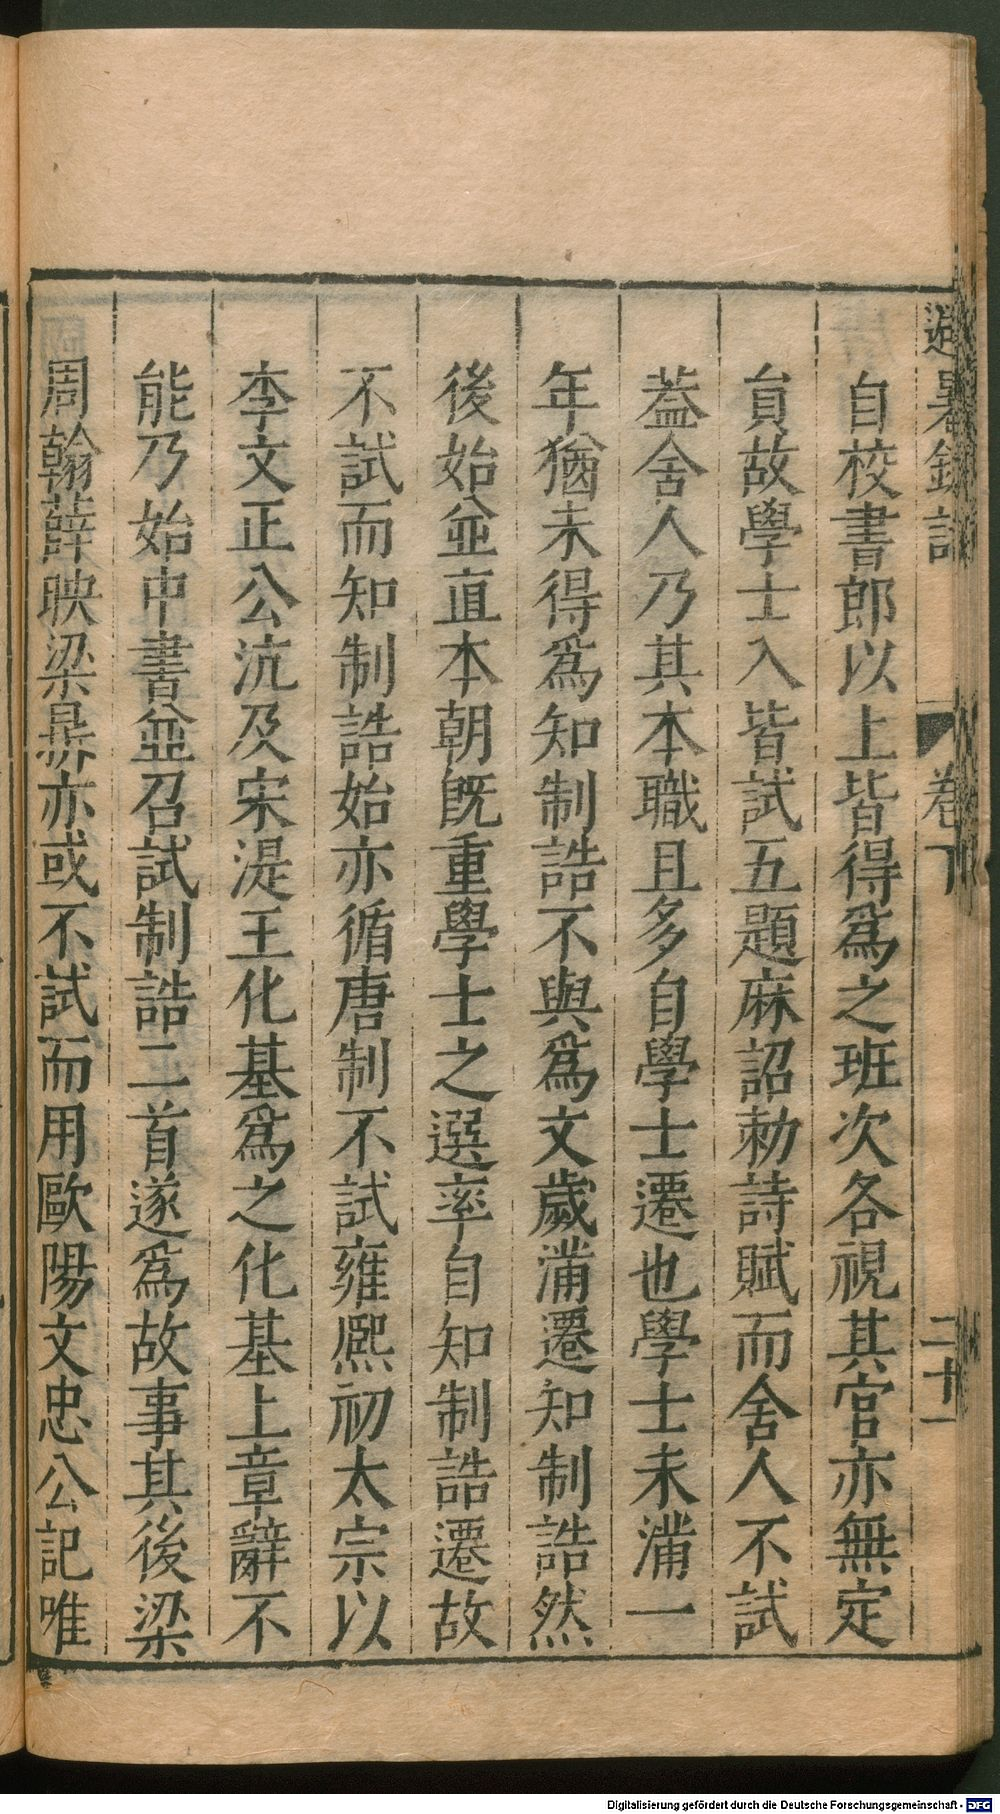 避暑錄話 卷下 二十一
自校書郎以上皆得爲之班次各視其官亦無定
員故學士入皆試五題麻詔勑詩賦而舍人不試
葢舍人乃其本職且多自學士遷也學士未滿一
年猶未得爲知制誥不與爲文歲滿遷知制誥然
後始並直本朝旣重學士之選率自知制誥遷故
不試而知制誥始亦循唐制不試雍熙初太宗以
李文正公沆及宋湜王化基爲之化基上章辭不
能乃始中書並召試制誥二首遂爲故事其後梁
周翰薛映梁鼎亦或不試而用歐陽文忠公記唯
Digitalisierung gefördert durch die Deutsche Forschungsgemeinschaft - DFG